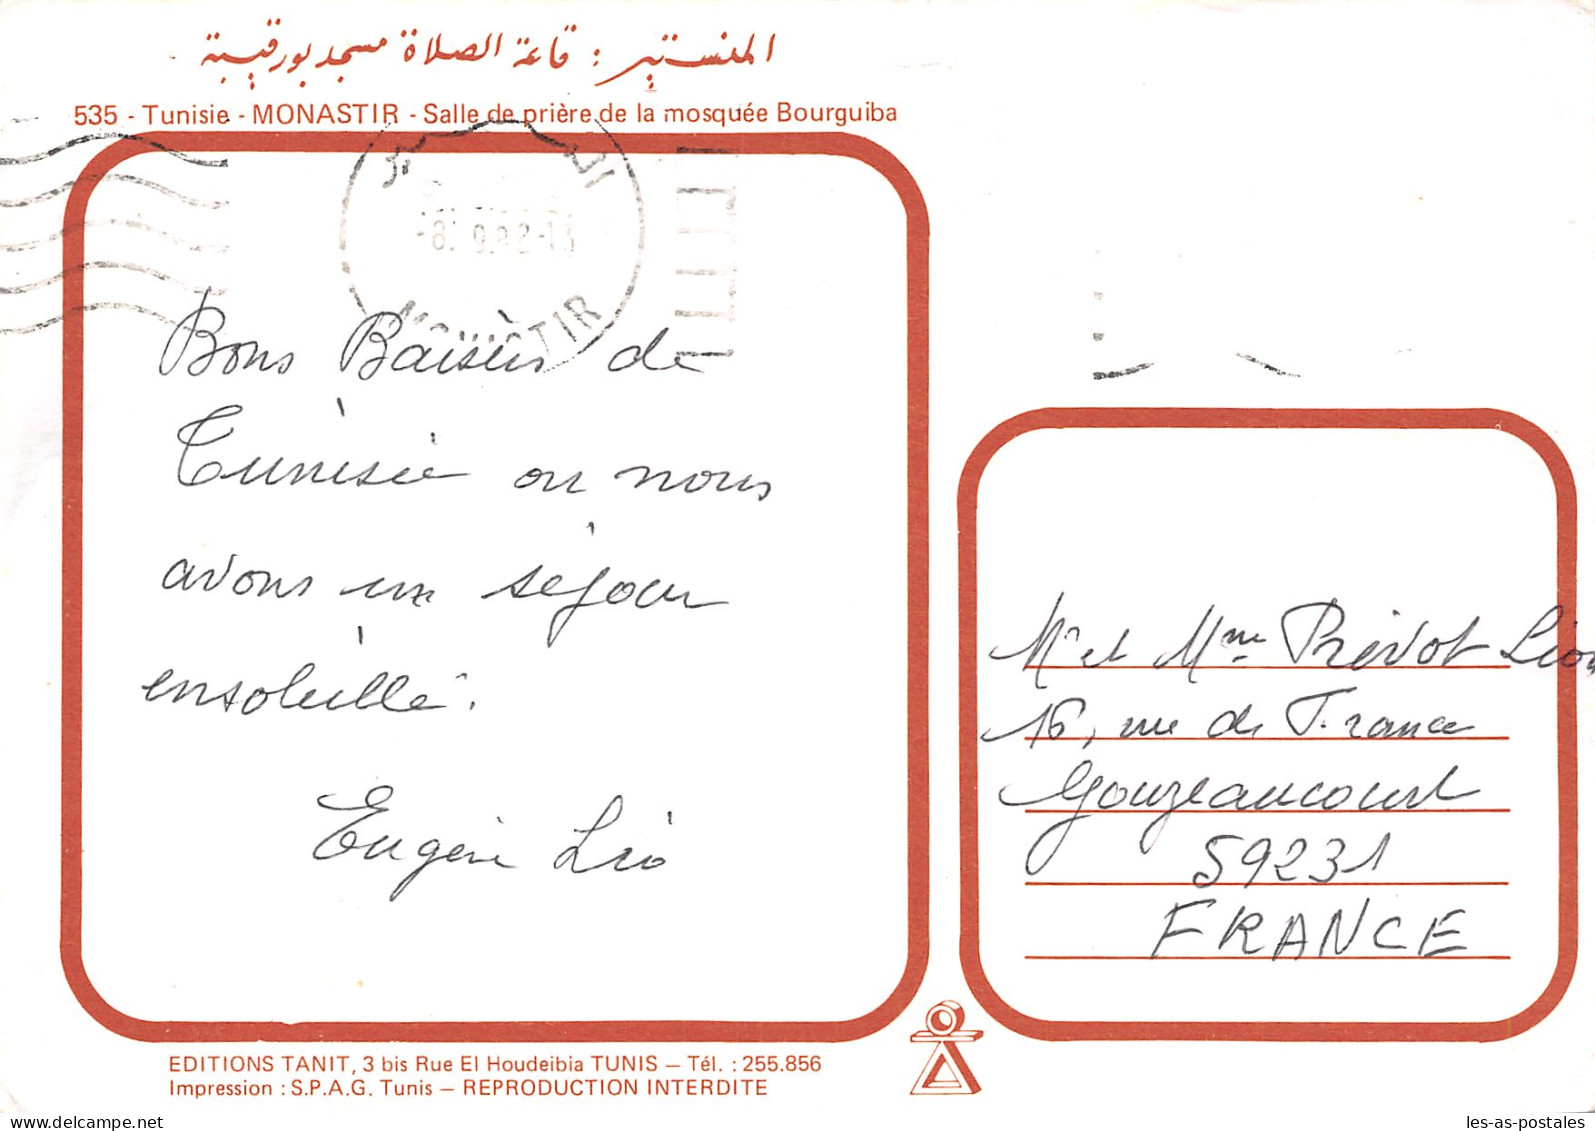 المنستير : قاعة الصلاة مسجد بورقيبة
535 - Tunisie - MONASTIR - Salle de prière de la mosquée Bourguiba
-8. 9.82-13
MONASTIR
Bons Baisers de
Tunisie ou nous
avons un séjour
ensoleillé.
Eugène Léo
Mr et Mme Prévot Léon
16, rue de France
Gouzeaucourt
59231
FRANCE
EDITIONS TANIT, 3 bis Rue El Houdeibia TUNIS – Tél. : 255.856
Impression : S.P.A.G. Tunis – REPRODUCTION INTERDITE
les-as-postales